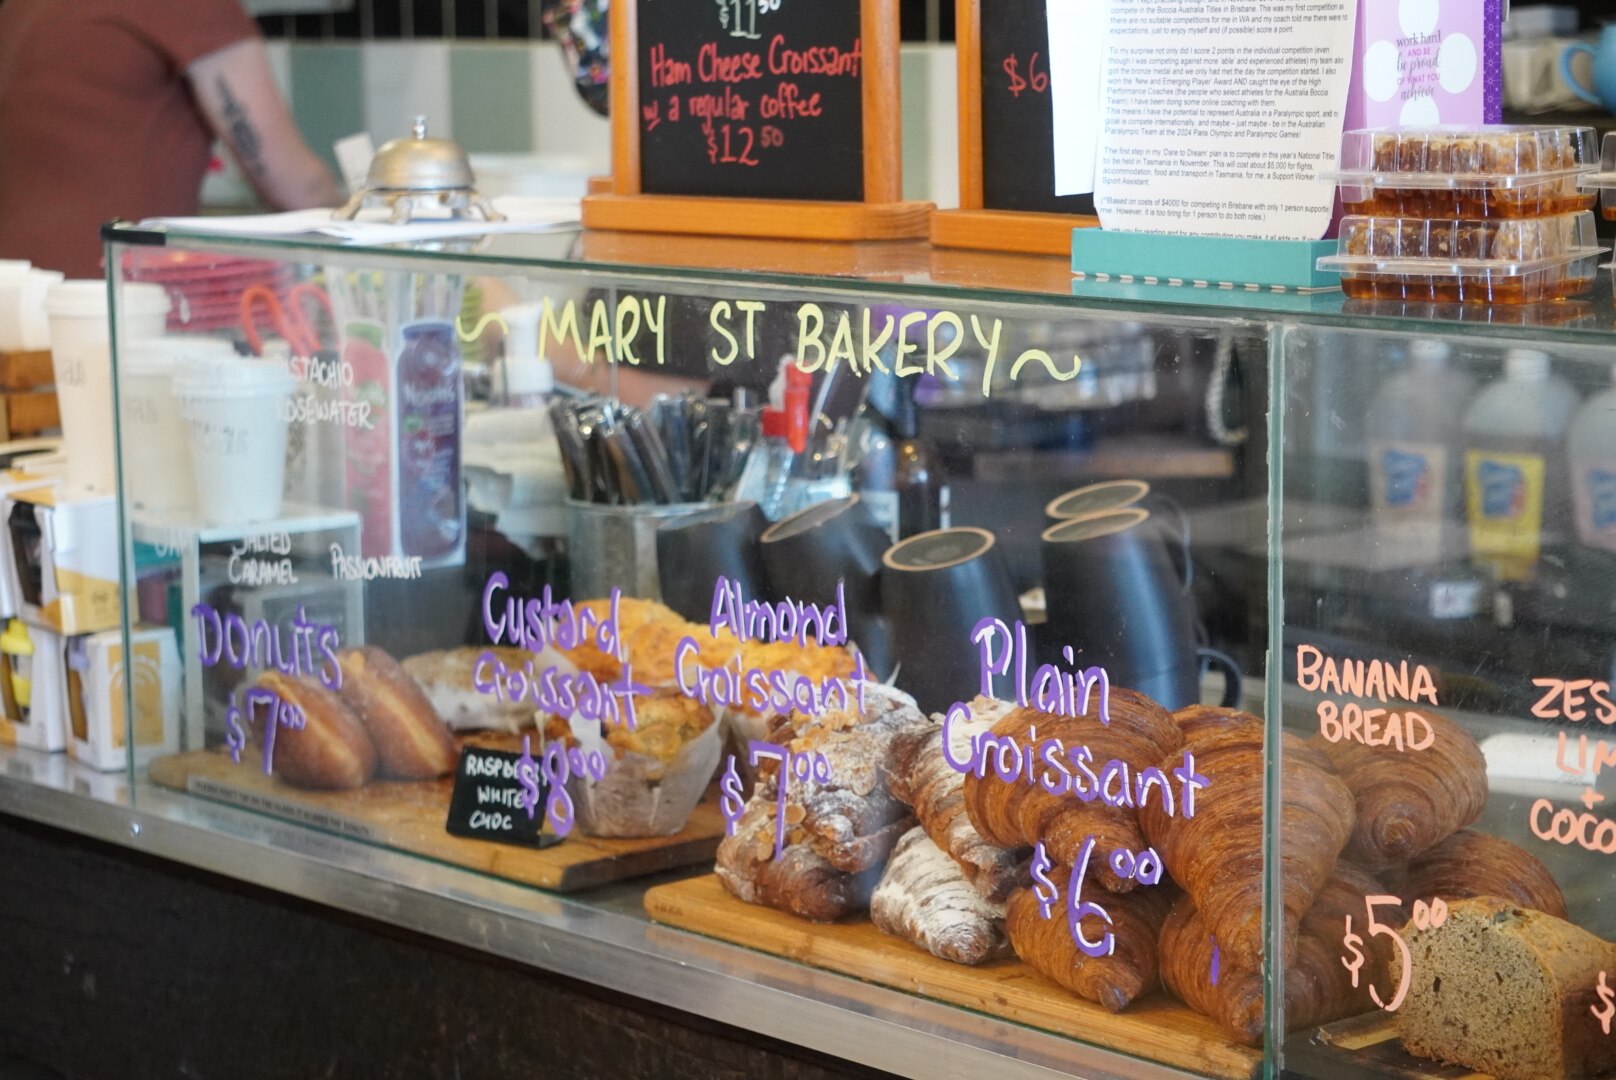 $11 50
Ham Cheese Croissant
w a regular coffee
$12 50
$6
compete in the Boccia Australia Titles in Brisbane. This was my first competition as
there are no suitable competitions for me in WA and my coach told me there were no
expectations, just to enjoy myself and (if possible) score a point.
To my surprise not only did I score 2 points in the individual competition (even
though I was competing against more 'able' and experienced athletes) my team also
got the bronze medal and we only had met the day the competition started. I also
won the 'New and Emerging Player' Award AND caught the eye of the High
Performance Coaches (the people who select athletes for the Australia Boccia
Team). I have been doing some online coaching with them.
This means I have the potential to represent Australia in a Paralympic sport, and my
goal is compete internationally, and maybe – just maybe - be in the Australian
Paralympic Team at the 2024 Paris Olympic and Paralympic Games!
The first step in my 'Dare to Dream' plan is to compete in this year's National Titles
to be held in Tasmania in November. This will cost about $5,000 for flights,
accommodation, food and transport in Tasmania, for me, a Support Worker
Sport Assistant.
(*Based on costs of $4000 for competing in Brisbane with only 1 person supporting
me. However, it is too tiring for 1 person to do both roles.)
work hard
AND BE
be proud
OF WHAT YOU
achieve
~ MARY ST BAKERY ~
ROSEWATER
SALTED
CARAMEL
PASSIONFRUIT
DONUTS
$7 00
Custard
Croissant
$8 00
RASPBE
WHITE
CHOC
Almond
Croissant
$7 00
Plain
Croissant
$6 00
BANANA
BREAD
$5 00
ZES
LIM
+
COCO
$